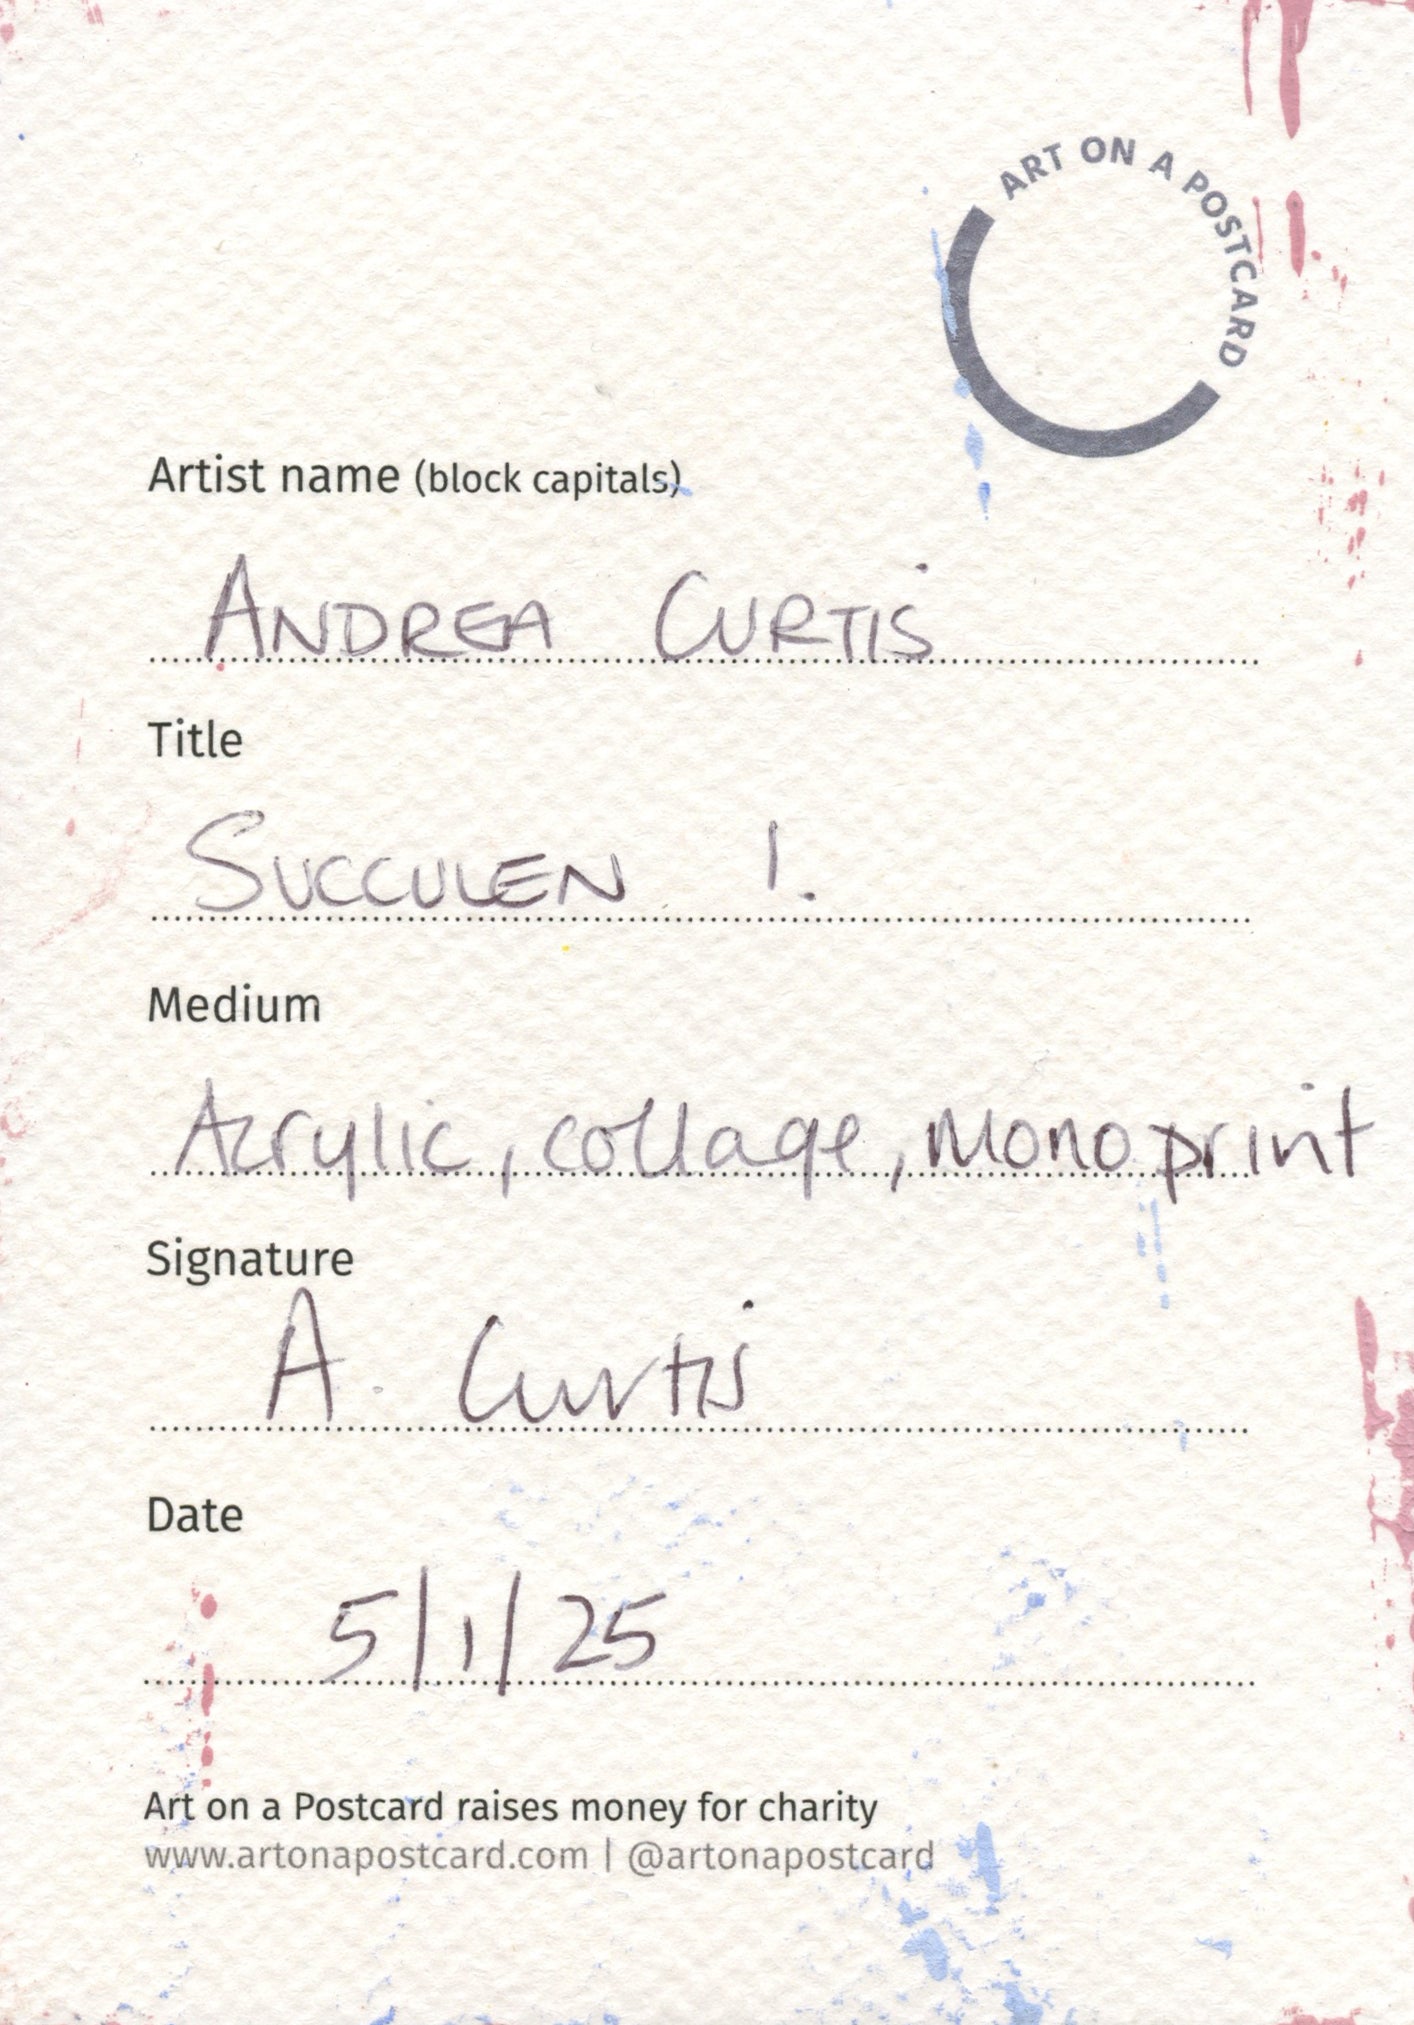 ART ON A POSTCARD
Artist name (block capitals)
ANDREA CURTIS
Title
SUCCULEN 1.
Medium
Acrylic, collage, Monoprint
Signature
A. Curtis
Date
5/1/25
Art on a Postcard raises money for charity
www.artonapostcard.com | @artonapostcard